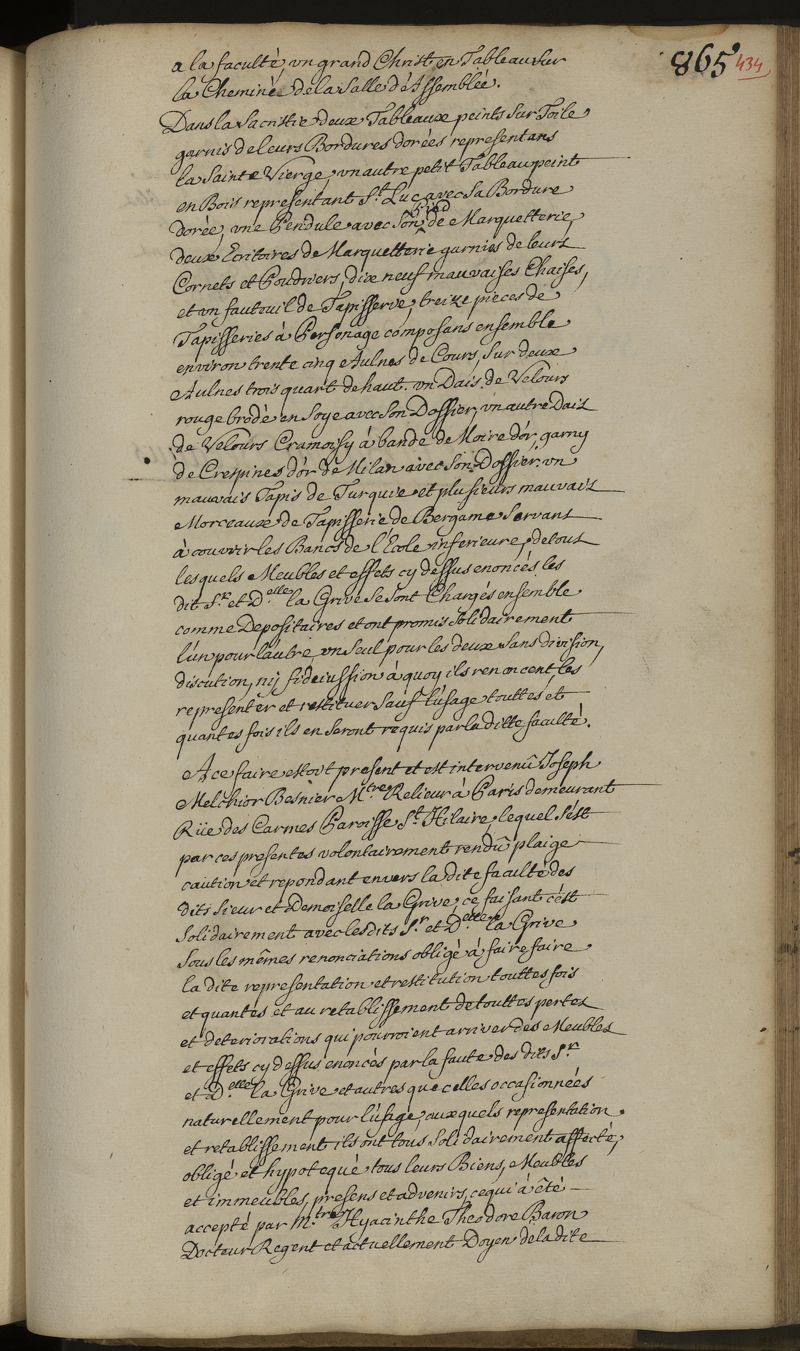 865 434
a la faculté, un grand Christ en Tableau sur
la Cheminé de la Salle d'Assemblée.
Dans la Sacristie deux Tableaux peints sur Toile
garnis de leurs Bordures dorées representans
la Sainte Vierge, un autre petit Tableau peint
en Bois representant St. Luc avec sa Bordure
dorée, une Pendule avec son pied de Marquetterie,
deux Ecritoires de Marquetterie garnies de leurs
Cornets et Poudriers, dix neuf mauvaises Chaises,
et un fauteuil de Tapisserie, treize pieces de
Tapisseries à Personage composans ensemble
environ trente cinq Aulnes de Cours, sur deux
Aulnes trois quart de haut. un Dais de Velours
rouge brodé en Soye avec son Dossier, un autre Dais
de Velours Cramoisy à bande de Moire d'or, garny
de Crespines d'or de Milan avec son Dossier. un
mauvais Tapis de Turquie et plusieurs mauvais
Morceaux de Tapisserie de Bergame servant
à couvrir les Bancs de l'Ecole inferieure, de tous
lesquels Meubles et effets cy dessus enoncés les
dit Sr. et Delle. la Grive se sont Chargés ensemble
comme Depositaires et ont promis solidairement
l'un pour l'autre, un seul pour les deux sans division,
discution, nij fideiussion à quoy ils renoncent, les
representer et restituer sauf l'usage touttes et
quantes fois ils en seront requis par la ditte faculté.
A ce faire etoit present et est intervenû Joseph
Melchior Besnier Mtre. Relieur à Paris demeurant
Rüe des Carmes Paroisse St. Hilaire, lequel s'est
par ces presentes volontairement rendû plaige
caution et repondant envers la dite faculté des
dits Sieur et Demoiselle la Grive, ce faisant c'est
solidairement avec lesdits Sr. et Delle. la Grive
sous les mêmes renonciations obligé à faire faire
la dite representation et restitution touttes fois
et quantes et au retablissement de touttes pertes
et deteriorations qui pourroient arriver des Meubles
et effets cy dessus enoncés par la faute des dits Sr.
et Delle. la Grive et autres que celles occasionnées
naturellement pour l'usage, auxquels representation
et retablissement ils ont tous solidairement affecté,
obligé et hypotequé tous leurs Biens, Meubles
et immeubles, presens et advenirs, ce qui à êté
accepté par Mtre. Hyacinthe Theodore Baron
Docteur Regent et actuellement Doyen de la dite